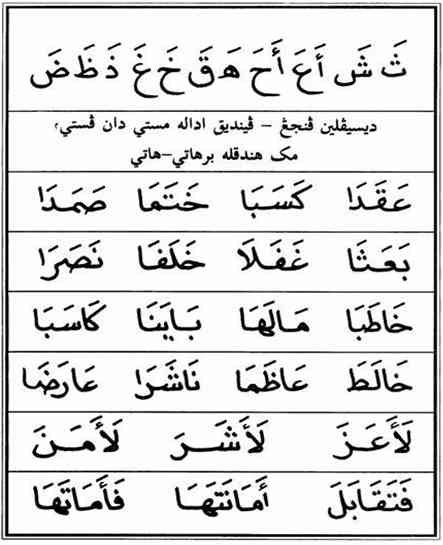 ثَ شَ أَعَ أَحَ هَ قَ خَ غَ ذَ ظَ ضَ
ديسيڤلين ڤنجڠ – ڤينديق اداله مستي دان ڤستي؛
مک هندقله برهاتي–هاتي
عَقَدَا كَسَبَا خَتَمَا صَمَدَا
بَعَثَا غَفَلَا خَلَفَا نَصَرَا
خَاطَبَا مَالَهَا بَايَنَا كَاسَبَا
خَالَطَ عَاظَمَا نَاشَرَا عَارَضَا
لَأَعَزَ لَأَشَرَ لَأَمَنَ
فَتَقَابَلَ أَمَانَتَهَا فَأَمَاتَهَا